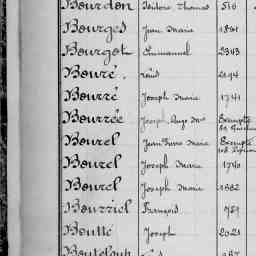 Bourdon Isidore Thomas 516
Bourges Jean Marie 1891
Bourgot Emmanuel 2343
Bouré, René 2194
Bourré Joseph Marie 1741
Bourrée Joseph Auge Mie Exempté
Bourel Jean Pierre Marie Exempté
Bourel Joseph Marie 1740
Bourel Joseph Marie 1882
Bourriel François 759
Boutté Joseph 2021
Bouteloup